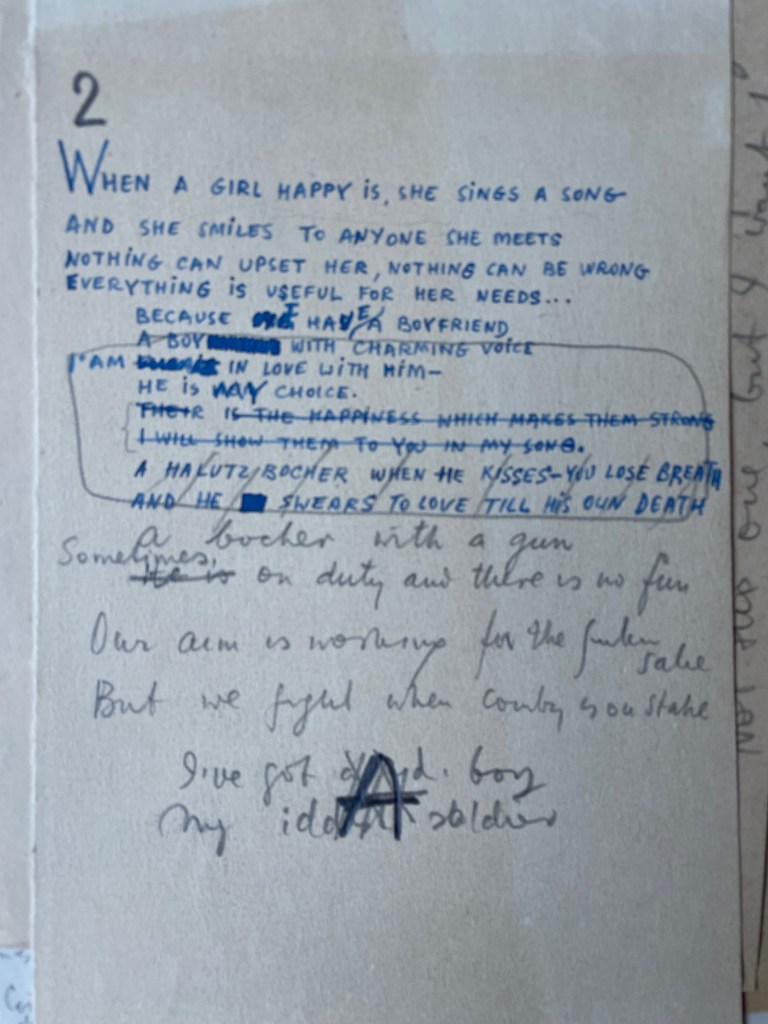 2
WHEN A GIRL HAPPY IS, SHE SINGS A SONG
AND SHE SMILES TO ANYONE SHE MEETS
NOTHING CAN UPSET HER, NOTHING CAN BE WRONG
EVERYTHING IS USEFUL FOR HER NEEDS...
BECAUSE I HAVE A BOYFRIEND
A BOY WITH CHARMING VOICE
I'AM IN LOVE WITH HIM–
HE IS MY CHOICE.
THEIR IS THE HAPPINESS WHICH MAKES THEM STRONG
I WILL SHOW THEM TO YOU IN MY SONG.
A HALUTZ BOCHER WHEN HE KISSES–YOU LOSE BREATH
AND HE SWEARS TO LOVE TILL HIS OUN DEATH
A bocher with a gun
Sometimes,
He is on duty and there is no fun
Our aim is working for the
sake
But we fight when is on stake
I've got boy
A
My soldier
not one, but I want